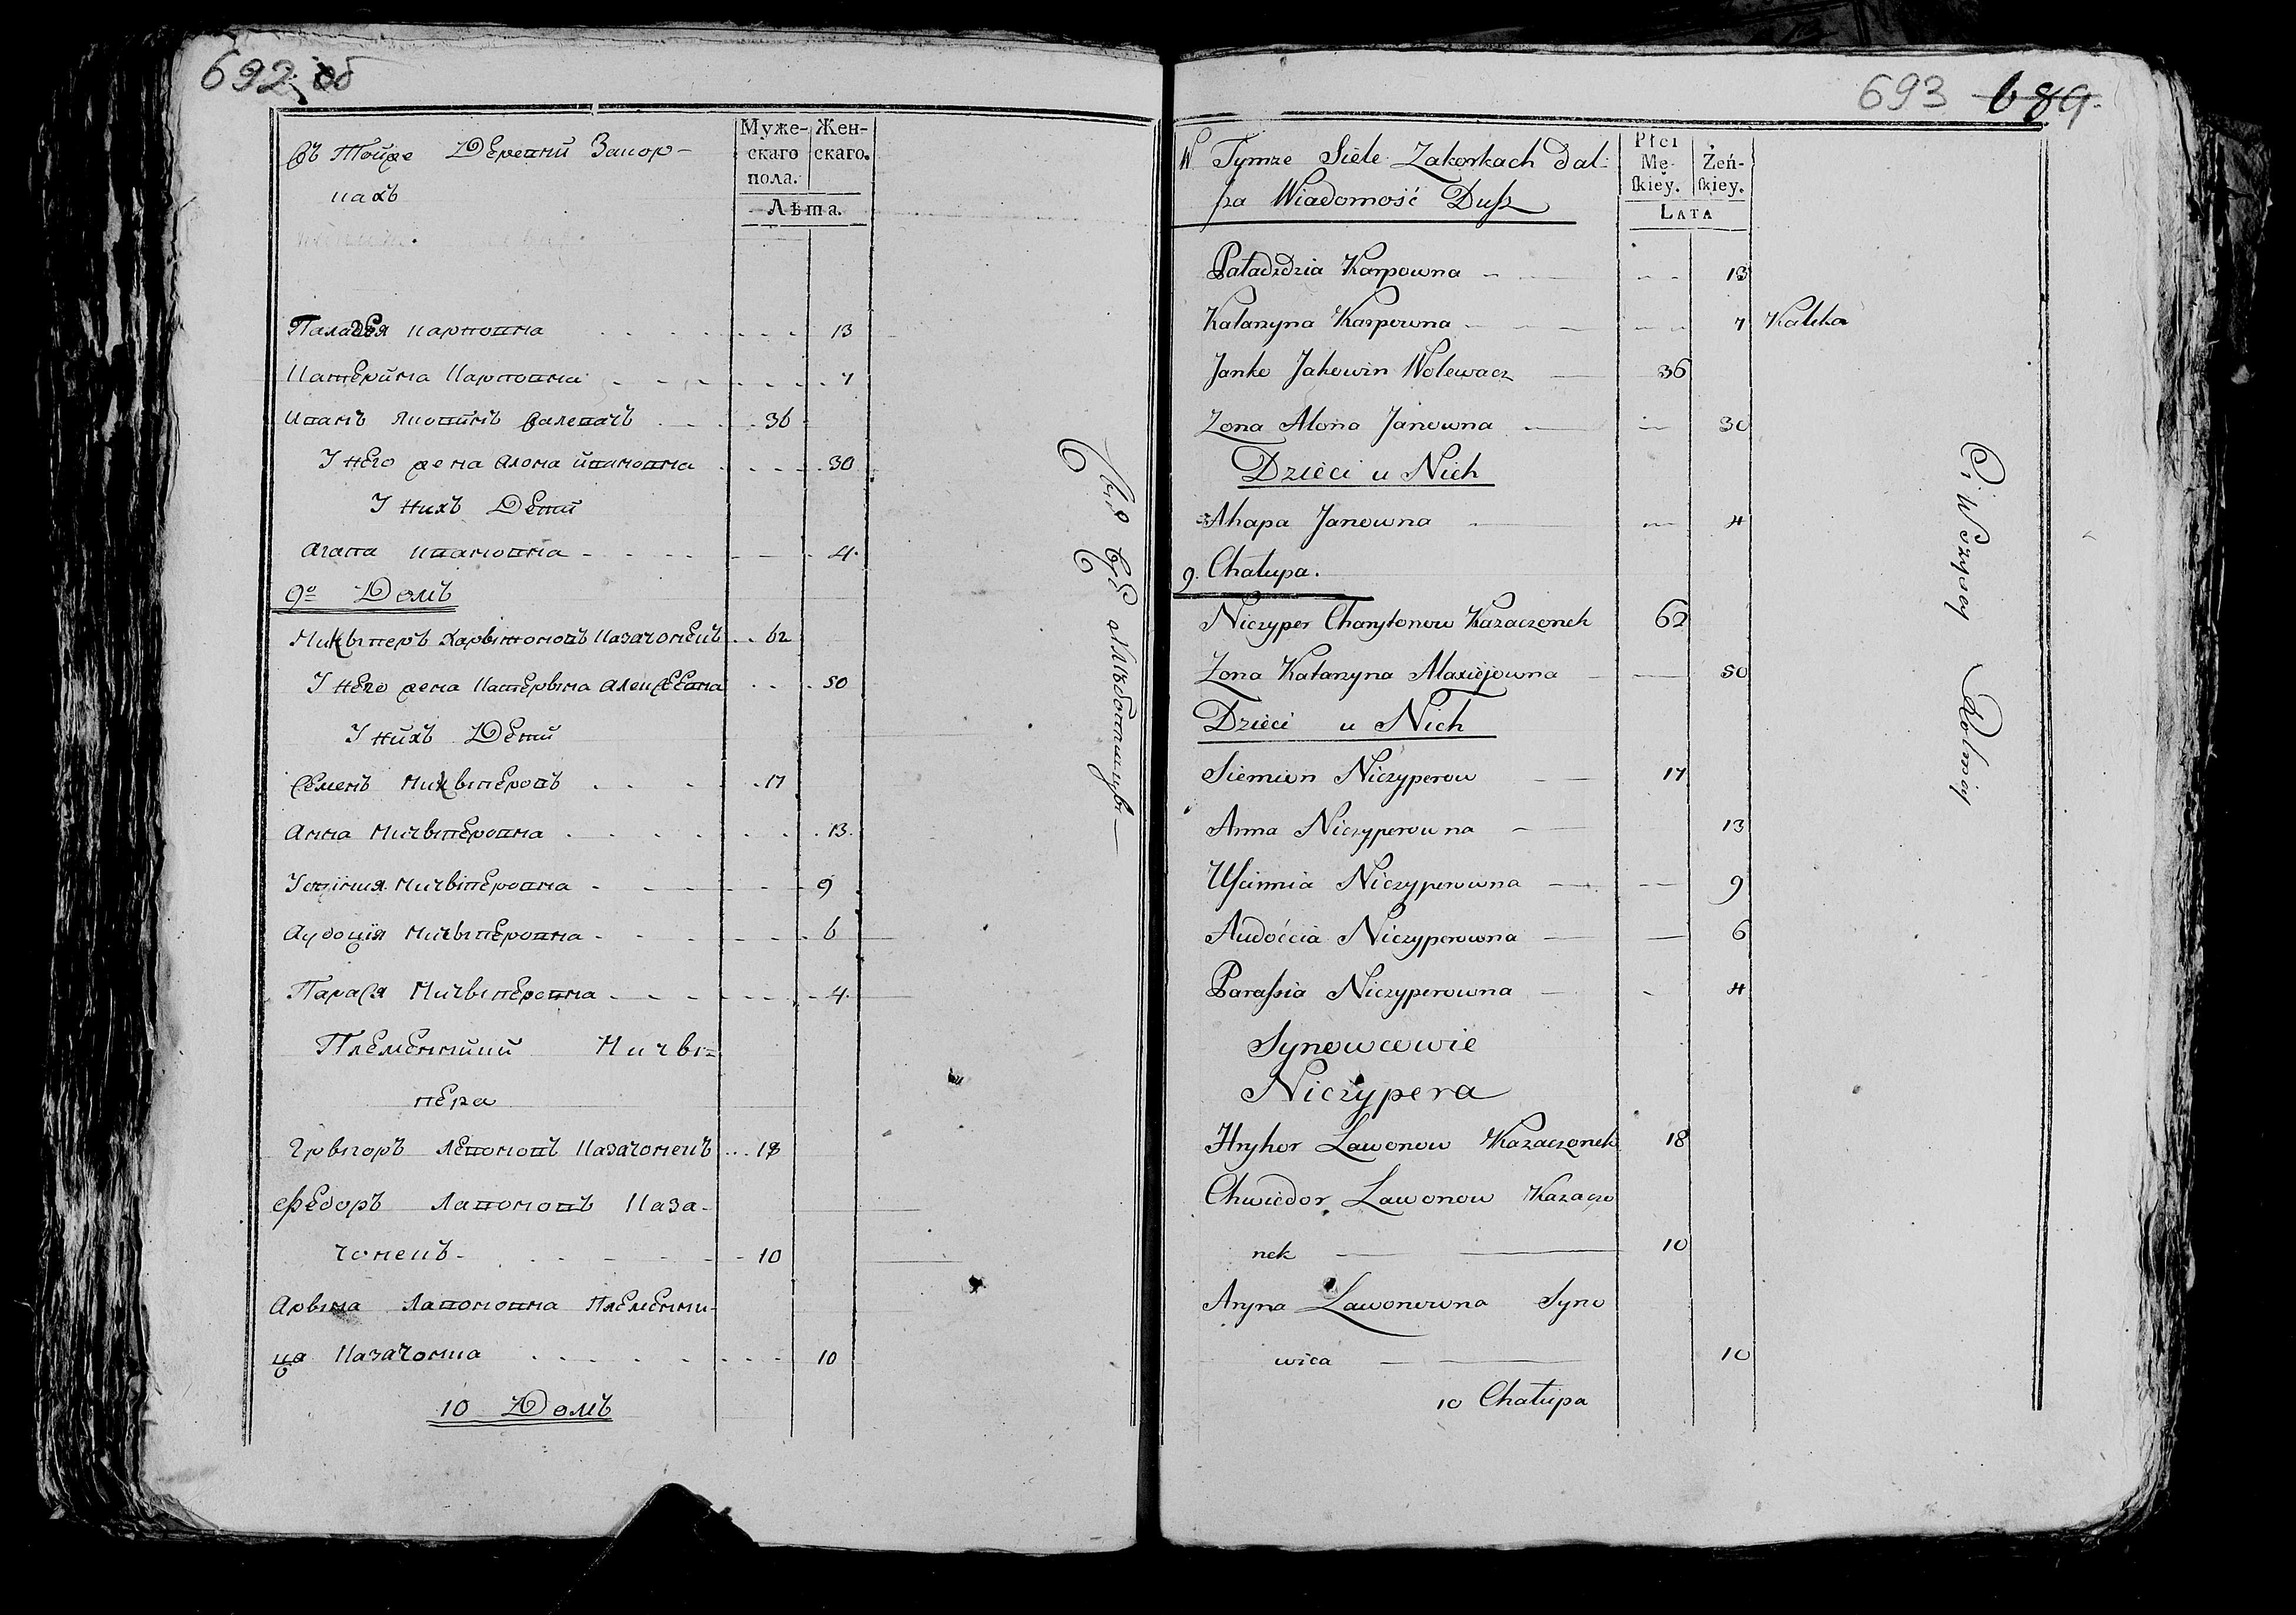 692 об
въ тойже Деревни Закор-
кахъ
Муже-
скаго
пола.
Жен-
скаго.
Лѣта.
Паладзя Карповна 13
Катерина Карповна 7
Иванъ Яковинъ Валевачъ 36
У него жена Алона Ивановна 30
У нихъ Дети
Агапа Ивановна 4
9о Домъ
Ничыперъ Харытоновъ Казачонекъ 62
У него жена Катерына Алексеевна 50
У нихъ Дети
Семенъ Ничыперовъ 17
Анна Ничыперовна 13
Устиния Ничыперовна 9
Аудоция Ничыперовна 6
Парася Ничыперовна 4
Племенники Ничы=
пера
Грыгоръ Левоновъ Казачонекъ 18
Федоръ Лавоновъ Каза-
чонекъ 10
Арына Лавоновна Племенни-
ца Казачонка 10
10 Домъ
693 689
W Tymze Siele Zakorkach dal-
sza Wiadomość Dusz
Płci
Mę-
skiey.
Żeń-
skiey.
LATA
Paladzdzia Karpowna 13
Katarzyna Karpowna 7 Kaleka
Janko Jakowin Wolewacz 36
Zona Alona Janowna 30
Dzieci u Nich
Ahapa Janowna 4
9. Chałupa.
Niczyper Charytonow Kazaczonek 62
Zona Katarzyna Alaxiejowna 50
Dzieci u Nich
Siemion Niczyperow 17
Anna Niczyperowna 13
Uscinnia Niczyperowna 9
Audoćcia Niczyperowna 6
Parassia Niczyperowna 4
Synowcowie
Niczypera
Hryhor Lawonow Kazaczonek 18
Chwiedor Lawonow Kazaczo
nek 10
Aryna Lawonowna Syno
wica 10
10 Chałupa
Ci Wszyscy Rolnicy